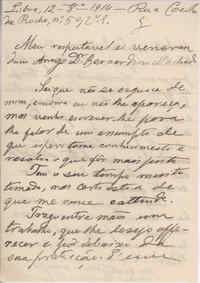 Lisboa, 12-8º-1914 - Rua Coelho
da Rocha, nº 59, 2º
Meu respeitavel e veneran
do Amigo Dr Bernardino Machado
Sei que não se esquece de
mim, embora eu não lhe apareça,
mas venho para
lhe falar de um assumpto de
que espero tome conhecimento e
resolva o que fôr mais justo
Tem o seu tempo muito
tomado, mas certo de
que me ouve
Trago entre mãos um
trabalho, que lhe desejo offe-
recer e debaixo da
sua protecção. É